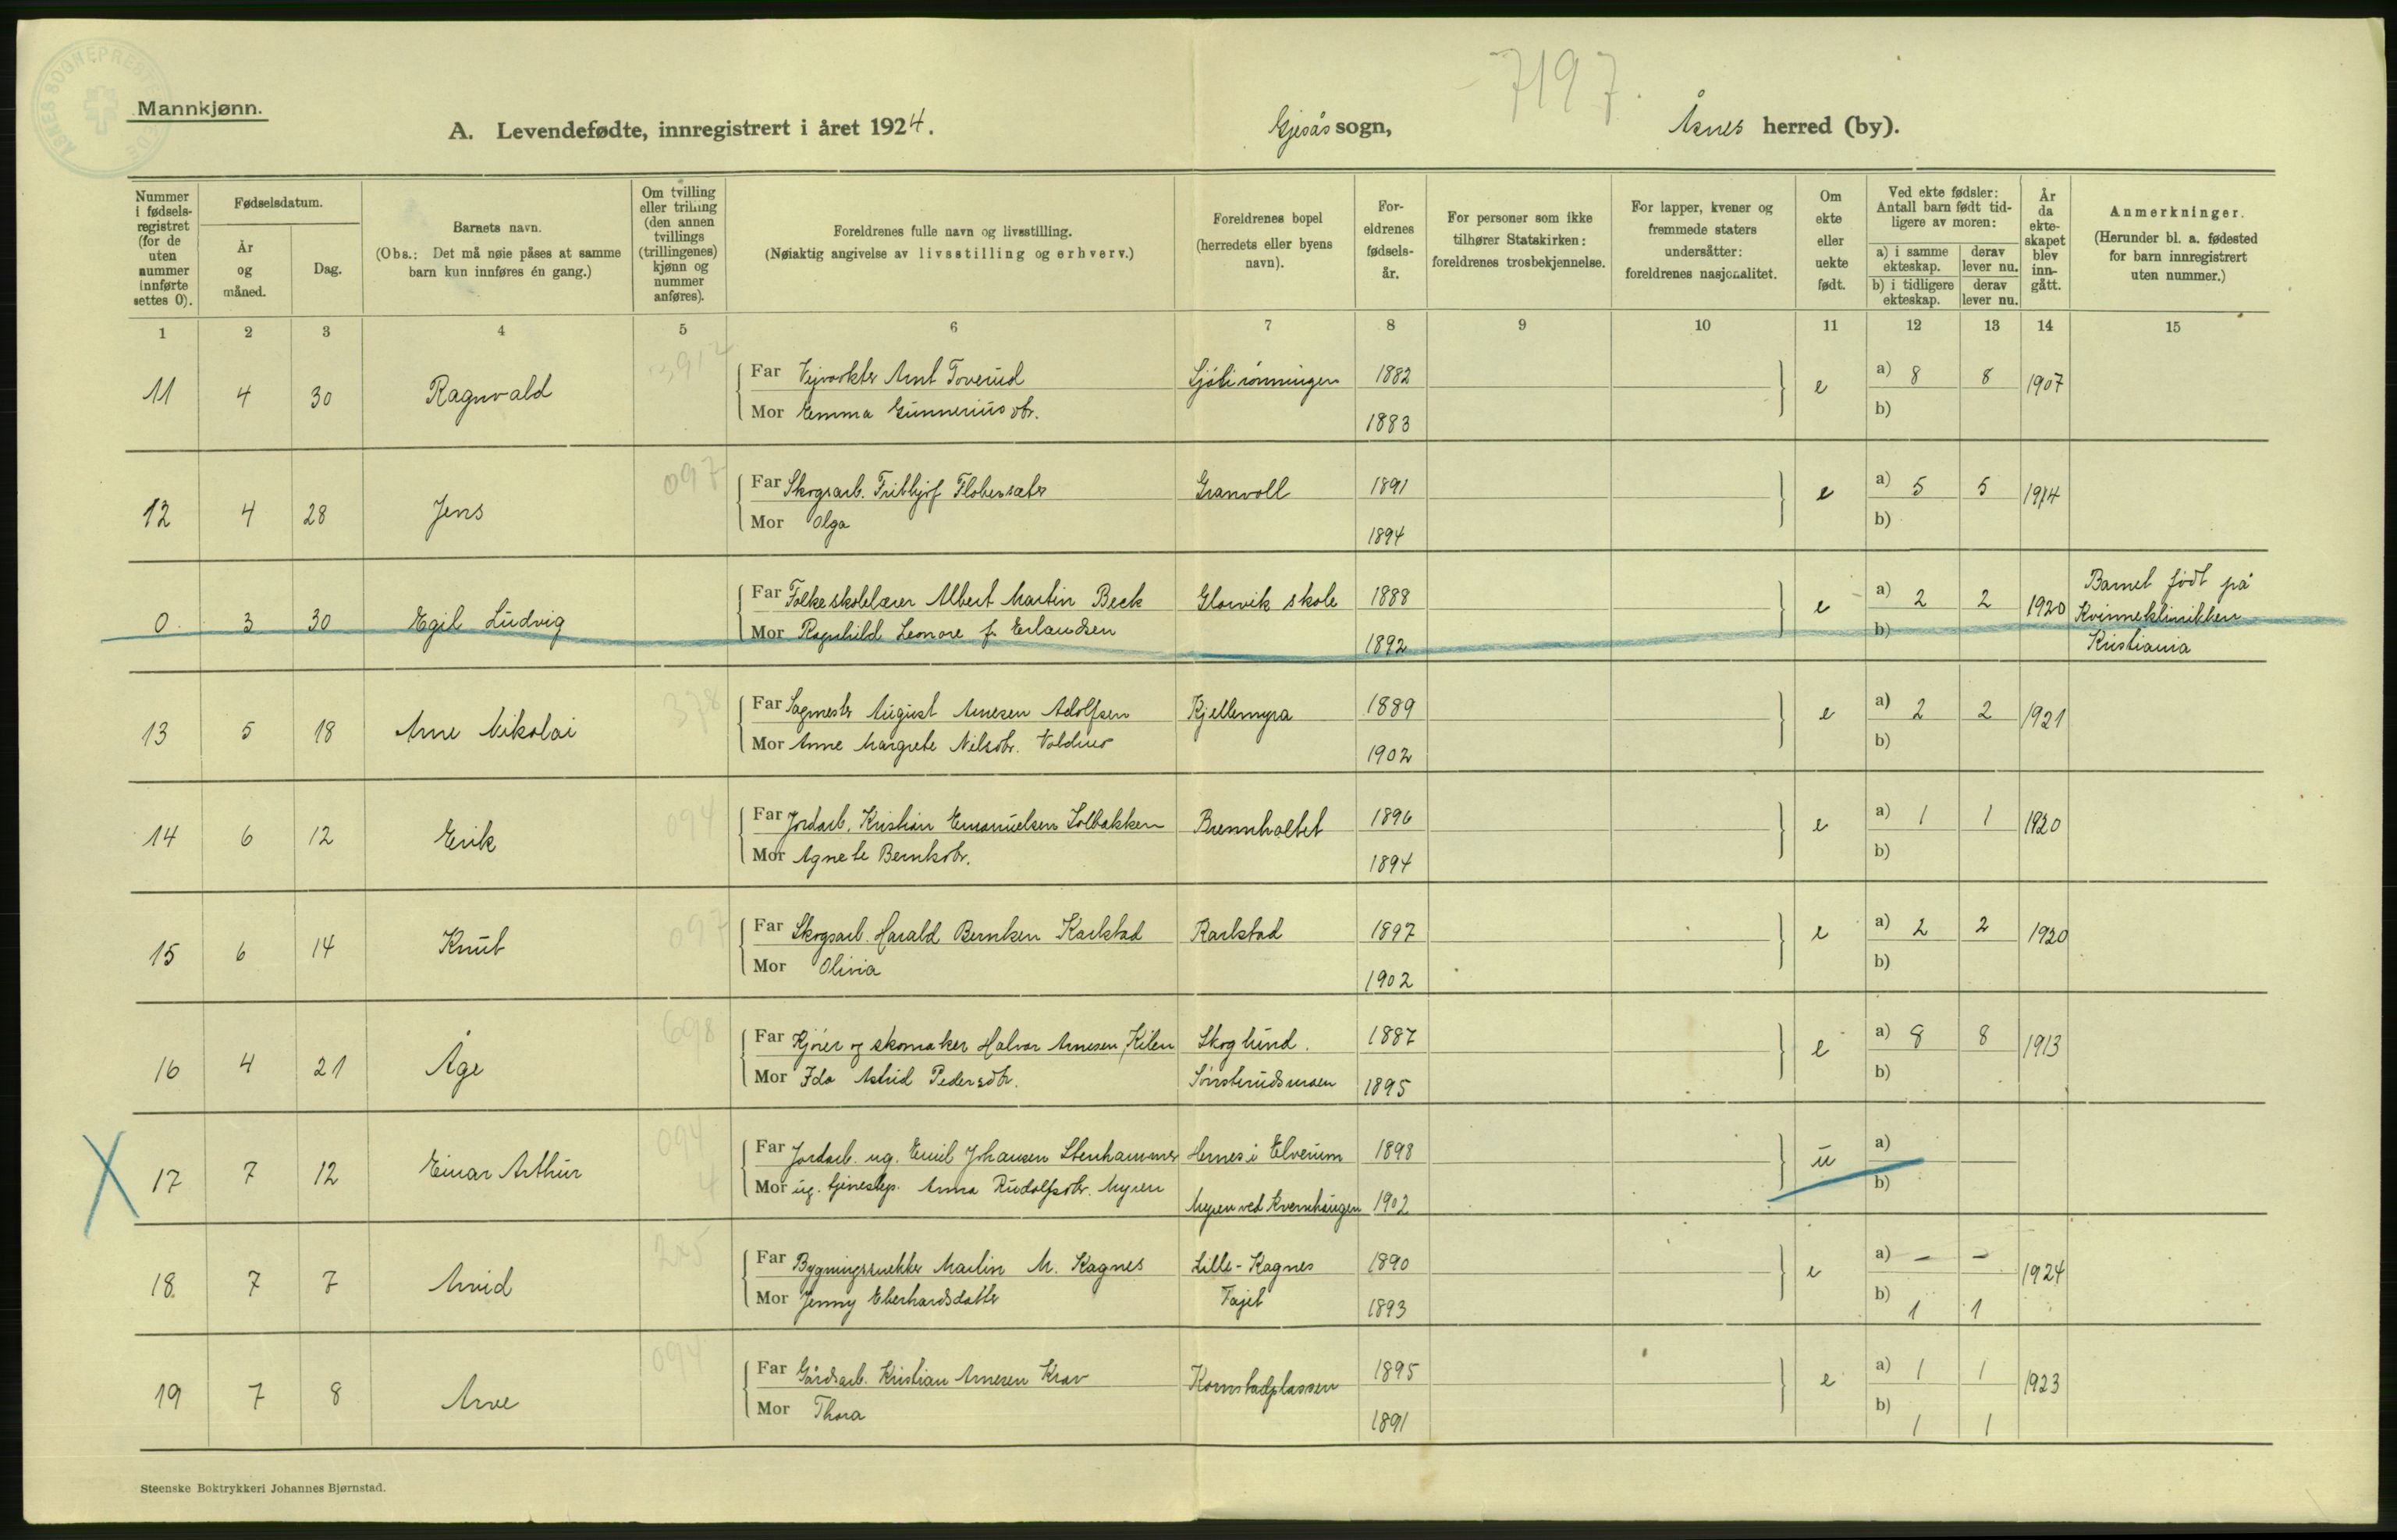 ÅSNES SOGNEPRESTEMBEDE
7197.
Mannkjønn.
A. Levendefødte, innregistrert i året 1924. Gjesås sogn, Åsnes herred (by).
Nummer i fødselsregistret (for de uten nummer innførte settes 0).
Fødselsdatum.
År og måned.
Dag.
Barnets navn.
(Obs.: Det må nøie påses at samme barn kun innføres én gang.)
Om tvilling eller trilling (den annen tvillings (trillingenes) kjønn og nummer anføres).
Foreldrenes fulle navn og livsstilling.
(Nøiaktig angivelse av livsstilling og erhverv.)
Foreldrenes bopel (herredets eller byens navn).
Foreldrenes fødselsår.
For personer som ikke tilhører Statskirken: foreldrenes trosbekjennelse.
For lapper, kvener og fremmede staters undersåtter: foreldrenes nasjonalitet.
Om ekte eller uekte født.
Ved ekte fødsler: Antall barn født tidligere av moren:
a) i samme ekteskap. derav lever nu.
b) i tidligere ekteskap. derav lever nu.
År da ekteskapet blev inngått.
Anmerkninger.
(Herunder bl. a. fødested for barn innregistrert uten nummer.)
1 2 3 4 5 6 7 8 9 10 11 12 13 14 15
11 4 30 Ragnvald Far Veivokter Arnt Toverud 1882 e a) 8 8 1907
Mor Emma Gunneriusdtr. 1883 b)
12 4 28 Jens 097 Far Skogsarb. Fritthjof Flobersæter Granvoll 1891 e a) 5 5 1914
Mor Olga 1894 b)
0 3 30 Egil Ludvig Far Folkeskolelærer Albert Martin Beck Glorvik skole 1888 e a) 2 2 1920 Barnet født på
Mor Ragnhild Leonore f. Erlandsen 1892 b) Kvinneklinikken
Kristiania
13 5 18 Arne Nikolai 378 Far Sagmester August Arnesen Adolfsen Kjellemyra 1889 e a) 2 2 1921
Mor Anne Margrete Nilsdtr. 1902 b)
14 6 12 Erik 094 Far Jordarb. Kristian Emanuelsen Solbakken Brennholtet 1896 e a) 1 1 1920
Mor Agnete Berntsdtr. 1894 b)
15 6 14 Knut 097 Far Skogsarb. Harald Berntsen Karlstad Karlstad 1897 e a) 2 2 1920
Mor Olivia 1902 b)
16 4 21 Åge 698 Far Kjører og skomaker Halvor Arnesen Kilen Skoglund. 1887 e a) 8 8 1913
Mor Ida Astrid Pedersdtr. Sønsterudsmoen 1895 b)
17 7 12 Einar Arthur 094 Far Jordarb. ug. Emil Johansen Stenhammer Hernes i Elverum 1898 u a)
4 Mor ug. tjenestep. Anna Rudolfsdtr. Myren Myren ved Kvernhaugen 1902 b)
18. 7 7 Arvid Far Bygningssnekker Martin M. Kagnes Lille-Kagnes 1890 e a) - - 1924
Mor Jenny Eberhardsdatter Fajet 1893 b) 1 1
19 7 8 Arve 094 Far Gårdsarb. Kristian Arnesen Krav Kornstadplassen 1895 e a) 1 1 1923
Mor Thora 1891 b) 1 1
Steenske Boktrykkeri Johannes Bjørnstad.